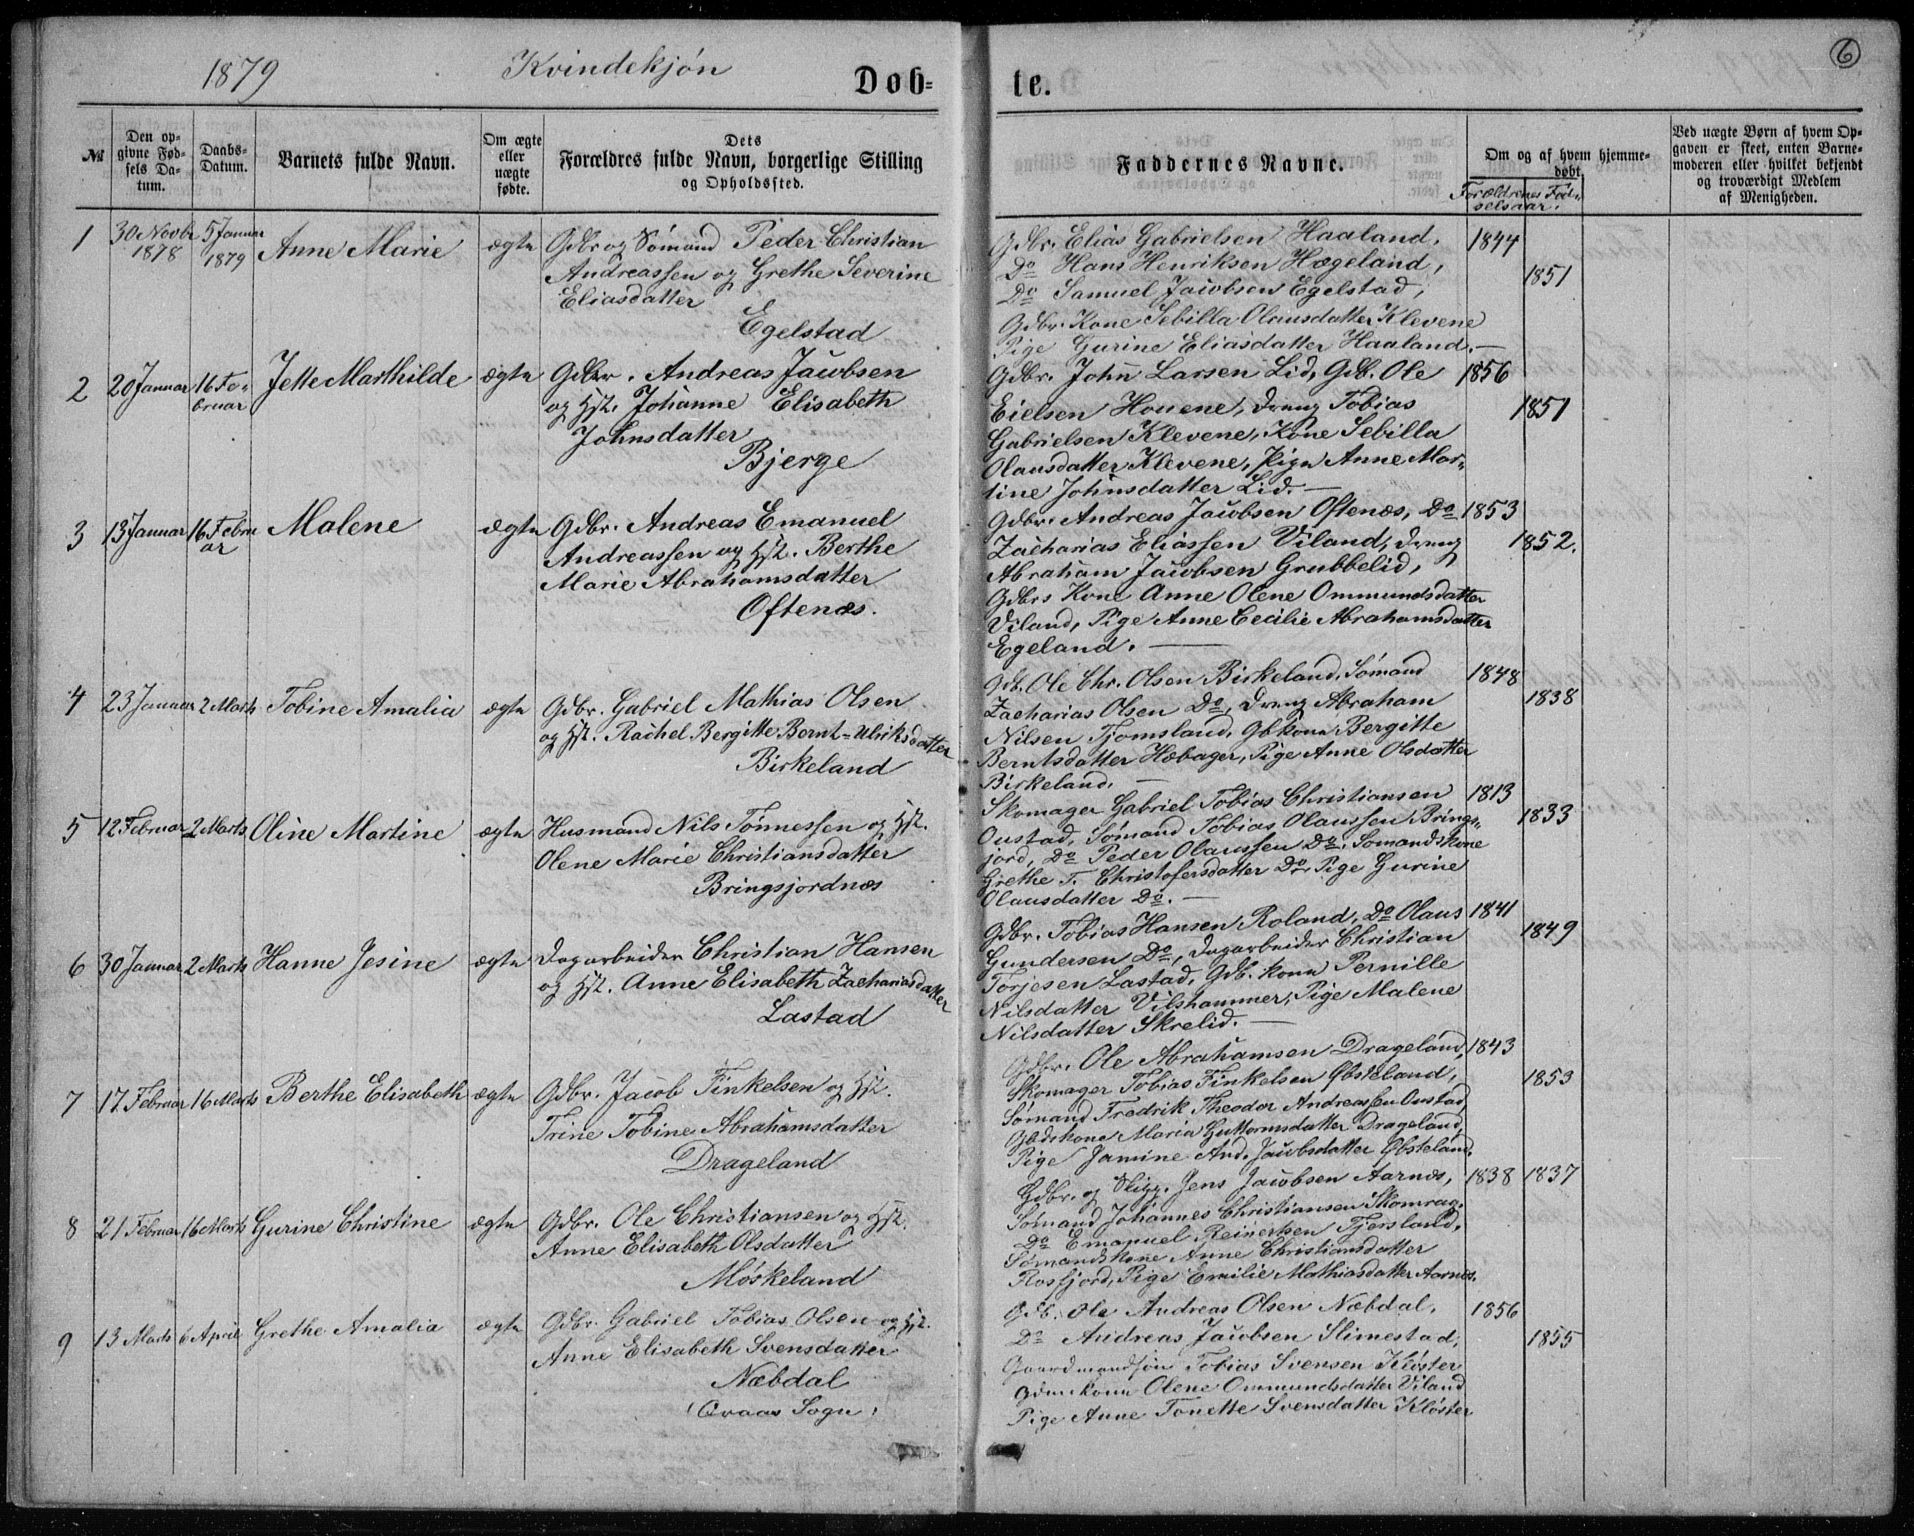 1879 Kvindekjøn Døb=
№
Den op=
givne Fød=
sels Da=
tum.
Daabs=
Datum.
Barnets fulde Navn.
Om ægte
eller
uægte
fødte.
Dets
Forældres fulde Navn, borgerlige Stilling
og Opholdssted.
1 30 Novbr 1878 5 Januar 1879 Anne Marie ægte Gdbr og Sømand Peder Christian
Andreassen og Grethe Severine
Eliasdatter
Egelstad
2 20 Januar 16 Fe-
bruar Jette Marthilde ægte Gdbr. Andreas Jacobsen
og Hst. Johanne Elisabeth
Johnsdatter
Bjerge
3 13 Januar 16 Febru
ar Malene ægte Gdbr. Andreas Emanuel
Andreassen og Hst. Berthe
Marie Abrahamsdatter
Oftenæs.
4 23 Januar 2 Marts Tobine Amalia ægte Gdbr. Gabriel Mathias Olsen
og Hst. Rachel Bergitte Bernt=Ulriksdatter
Birkeland
5 12 Februar 2 Marts Oline Martine ægte Husmand Nils Tønnessen og Hst.
Olene Marie Christiansdatter
Bringsjordnæs
6 30 Januar 2 Marts Hanne Jesine ægte Dagarbeider Christian Hansen
og Hst. Anne Elisabeth Zachariasdatter
Lastad
7 17 Februar 16 Marts Berthe Elisabeth ægte Gdbr. Jacob Finkelsen og Hst.
Trine Tobine Abrahamsdatter
Drageland
8 21 Februar 16 Marts Gurine Christine ægte Gdbr. Ole Christiansen og Hst.
Anne Elisabeth Olsdatter
Møskeland
9 13 Marts 6 April Grethe Amalia ægte Gdbr. Gabriel Tobias Olsen og Hst.
Anne Elisabeth Svensdatter
Næbdal
Sogn
te.
6
Faddernes Navne.
Om og af hvem hjemme=
døbt.
Forældrenes Fød-
selsaar.
Ved uægte Børn af hvem Op=
gaven er skeet, enten Barne=
moderen eller hvilket bekjendt
og troværdigt Medlem
af Menigheden.
Gdbr. Elias Gabrielsen Haaland, 1844
Do Hans Henriksen Hægeland, 1851
Do Samuel Jacobsen Egelstad,
Gdbr. Kone Sebilla Olausdatter Klevene
Pige Gurine Eliasdatter Haaland.
Gdbr. John Larsen Lid, Gdb. Ole 1856
Eielsen Houene, Dreng Tobias 1851
Gabrielsen Klevene, Kone Sebilla
Olausdatter Klevene, Pige Anne Mar-
tine Johnsdatter Lid.
Gdbr. Andreas Jacobsen Oftenæs, Do 1853
Zacharias Eliassen Viland, Dreng 1852.
Abraham Jacobsen Grubbelid,
Gdbrs Kone Anne Olene Ommundsdatter
Viland, Pige Anne Cecilie Abrahamsdatter
Egeland.
Gdb. Ole Chr. Olsen Birkeland, Sømand 1848
Zacharias Olsen Do, Dreng Abraham 1838
Nilsen Tjomsland, Gbkone Bergitte
Berntsdatter Hæbager, Pige Anne Olsdatter
Birkeland.
Skomager Gabriel Tobias Christiansen 1813
Oustad, Sømand Tobias Olaussen Brings- 1833
jord, Do Peder Olaussen Do, Sømandskone
Grethe T. Christofersdatter Do, Pige Gurine
Olausdatter Do.
Gdbr. Tobias Hansen Roland, Do Olaus 1841
Gundersen Do, Dagarbeider Christian 1849
Torjesen Lastad, Gdb. kone Pernille
Nilsdatter Vilshammer, Pige Malene
Nilsdatter Skrelid.
Gdbr. Ole Abrahamsen Drageland, 1843
Skomager Tobias Finkelsen Øbsteland, 1853
Sømand Fredrik Theodor Andreassen Oustad,
Gbdskone Maria Guttormsdatter Drageland,
Pige Jamine And. Jacobsdatter Øbsteland.
Gdbr. og Jens Jacobsen Aarnæs, 1838 1837
Sømand Johannes Christiansen Skomrag,
Do Emanuel Reinertsen Tjersland,
Sømandskone Anne Christiansdatter
Rosfjord, Pige Emilie Mathiasdatter Aarnæs.
Gdb. Ole Andreas Olsen Næbdal, 1856
Do Andreas Jacobsen Slimestad, 1855
Gaardmandsøn Tobias Svensen Kloster
kone Olene Ommundsdatter Viland
Pige Anne Tonette Svensdatter Kloster